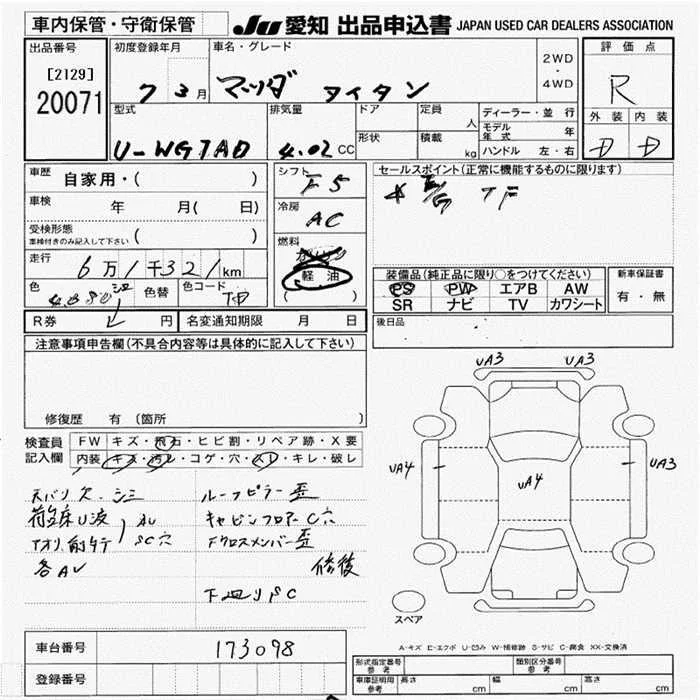 車内保管・守衛保管
JU 愛知 出品申込書 JAPAN USED CAR DEALERS ASSOCIATION
出品番号
[2129]
20071
初度登録年月
7 3月
車名・グレード
マツダ タイタン
2WD
・
4WD
評価点
R
外装 内装
D D
型式
U-WG7AD
排気量
4.02 CC
ドア
形状
定員
人
積載
kg
ディーラー・並行
モデル年式 年
ハンドル 左・右
車歴 自家用・( )
車検 年 月( 日)
受検形態
車検付きのみ記入して下さい ( )
走行 6万1千321km
色 色替 色コード
シフト
F5
冷房
AC
燃料
ガソリン
軽油
( )
セールスポイント(正常に機能するものに限ります)
装備品(純正品に限り○をつけてください)
PS PW エアB AW
SR ナビ TV カワシート
新車保証書
有・無
R券 円 名変通知期限 月 日
後日品
注意事項申告欄(不具合内容等は具体的に記入して下さい)
修復歴 有 (箇所 )
検査員記入欄
FW キズ・飛石・ヒビ割・リペア跡・X要
内装 キズ・汚レ・コゲ・穴・スレ・キレ・破レ
天バリ欠、シミ
荷台床U波
アオリ、前タテ
SC穴
各AU
ルーフピラー歪
キャビンフロアーC穴
Fクロスメンバー歪
修後
下廻りSC
UA3 UA3
UA4 UA4 UA3
スペア
A-キズ E-エクボ U-凹み W-補修跡 S-サビ C-腐食 XX-交換済
車台番号 173098
登録番号
形式指定番号 参考
類別区分番号 参考
車庫証明用 参考
長さ cm 幅 cm 高さ cm